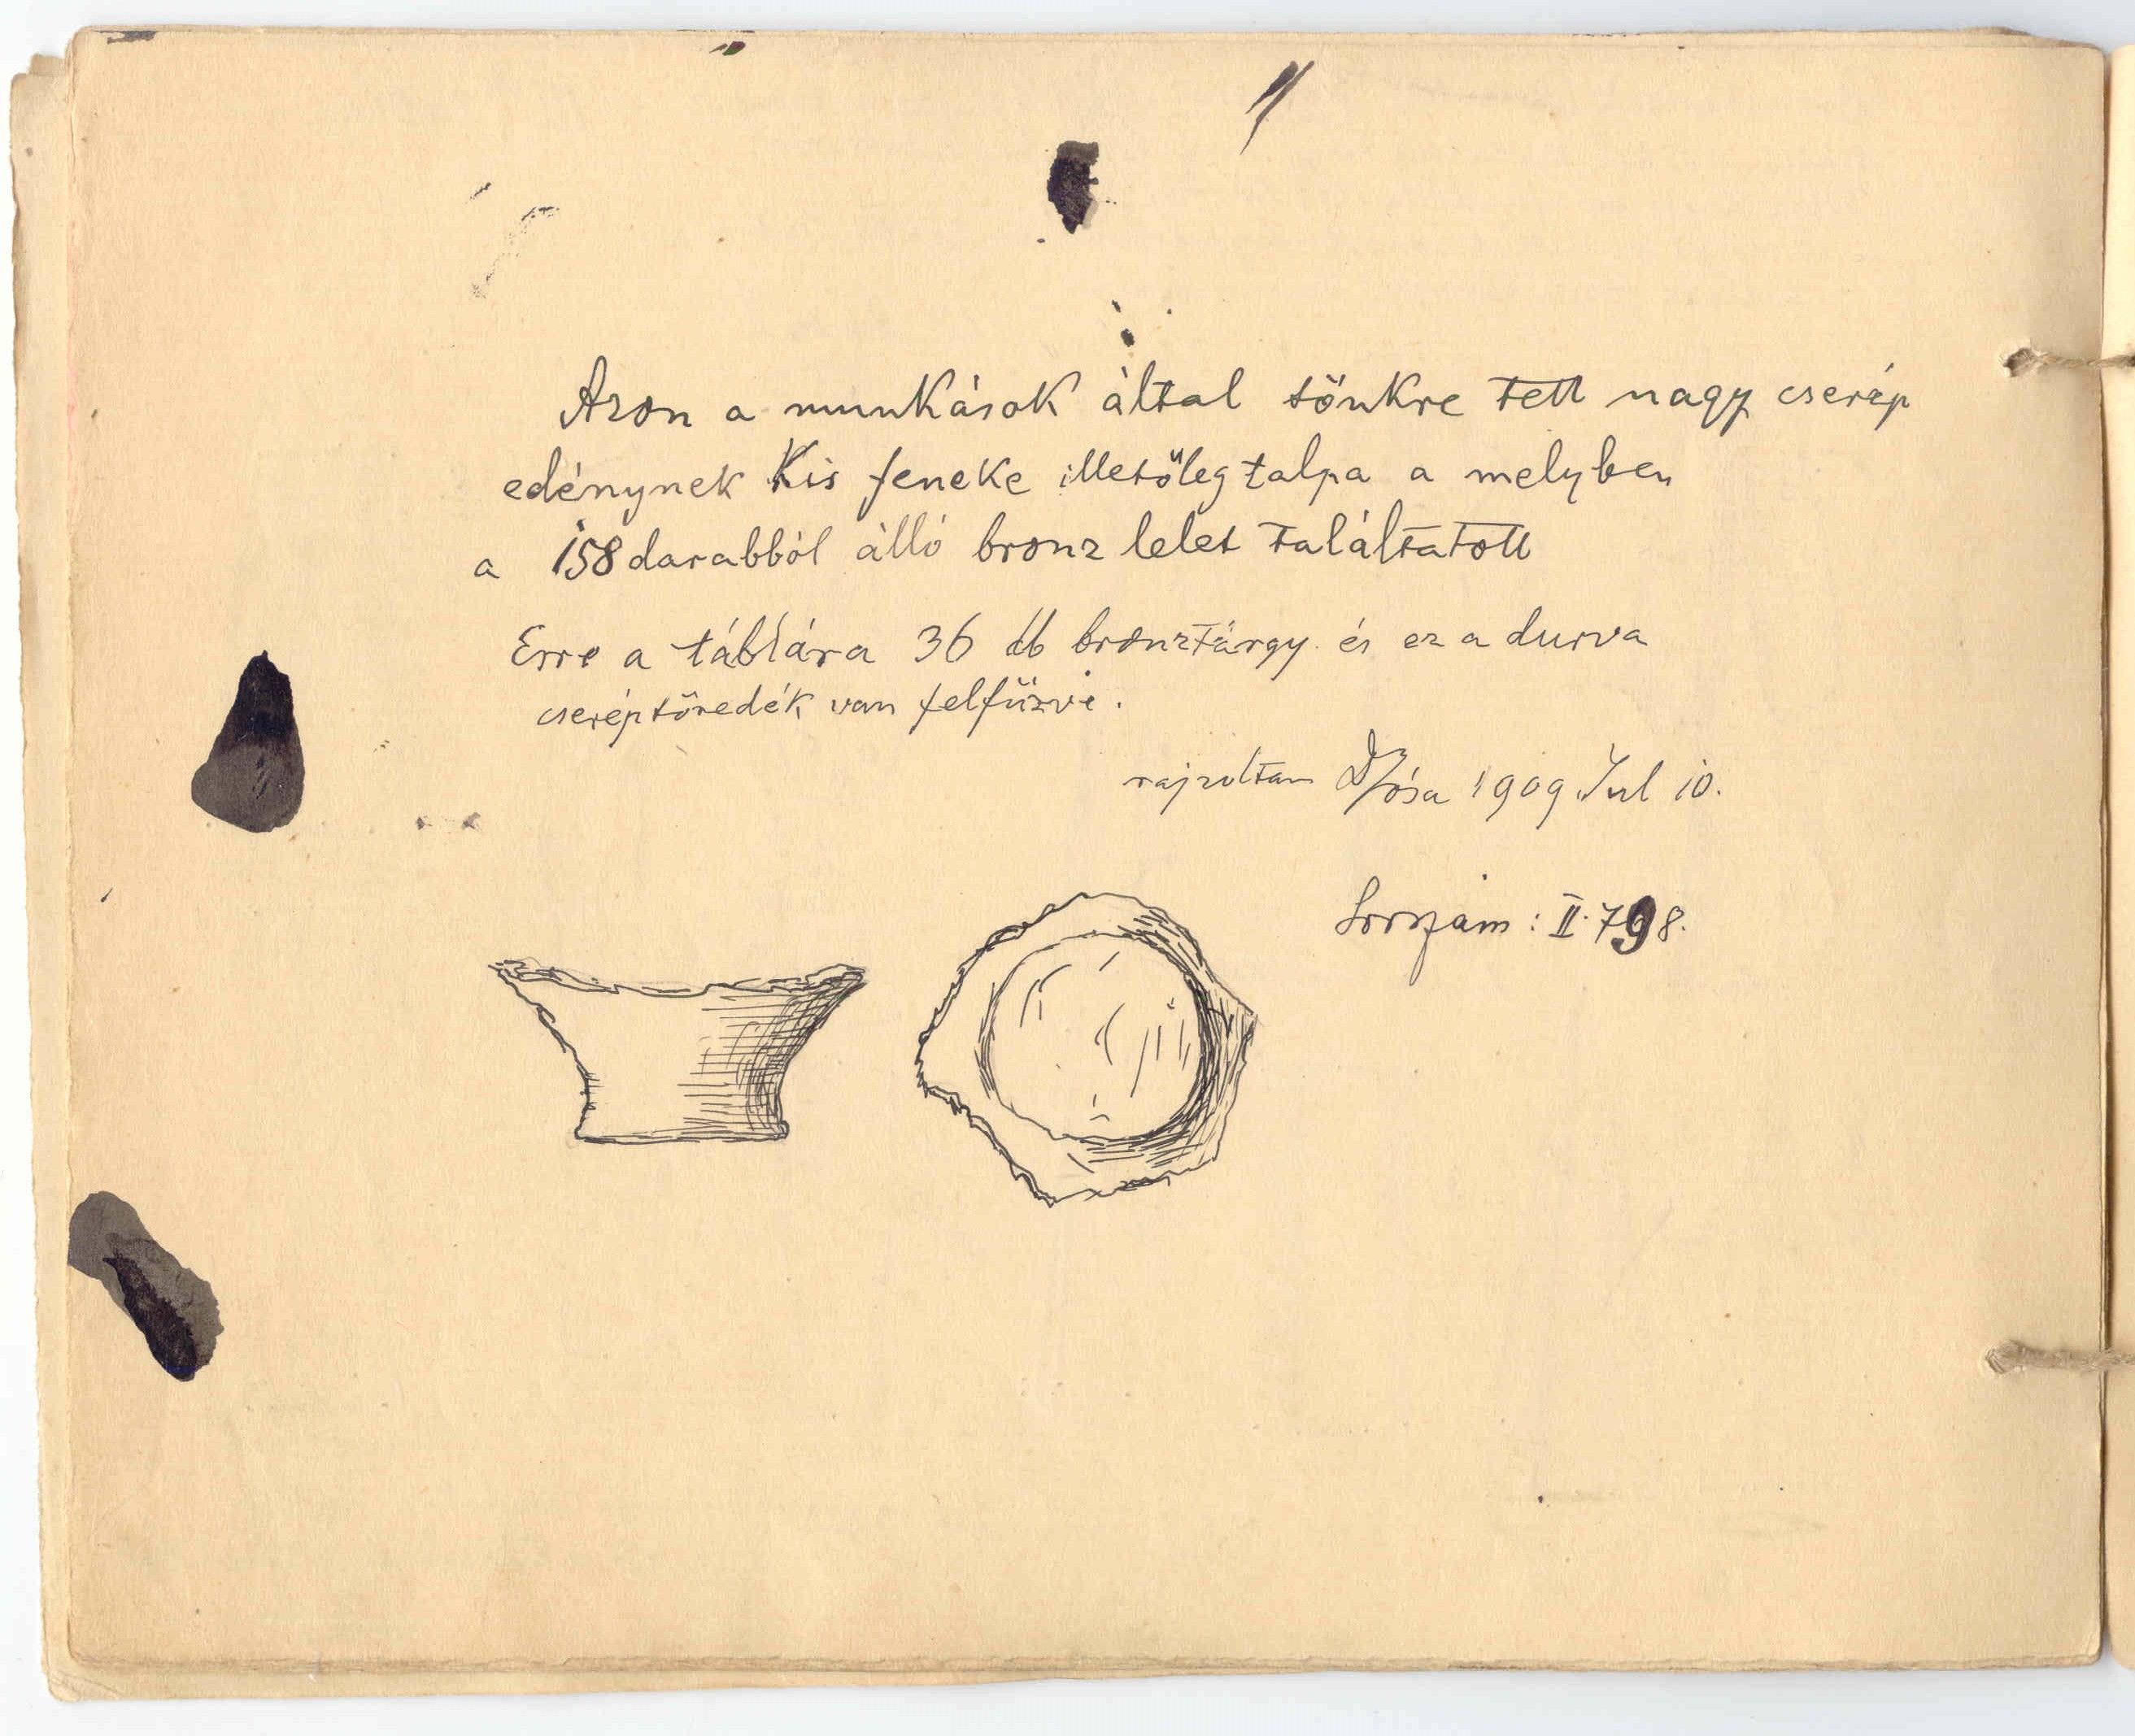 Azon a munkások által tönkre tett nagy cserép
edénynek kis feneke illetőleg talpa a melyben
a 158 darabból álló bronz lelet találtatott
Erre a táblára 36 db bronztárgy és ez a durva
cseréptöredék van felfűzve.
rajzoltam DJósa 1909 Jul 10.
Sorszám: II. 798.